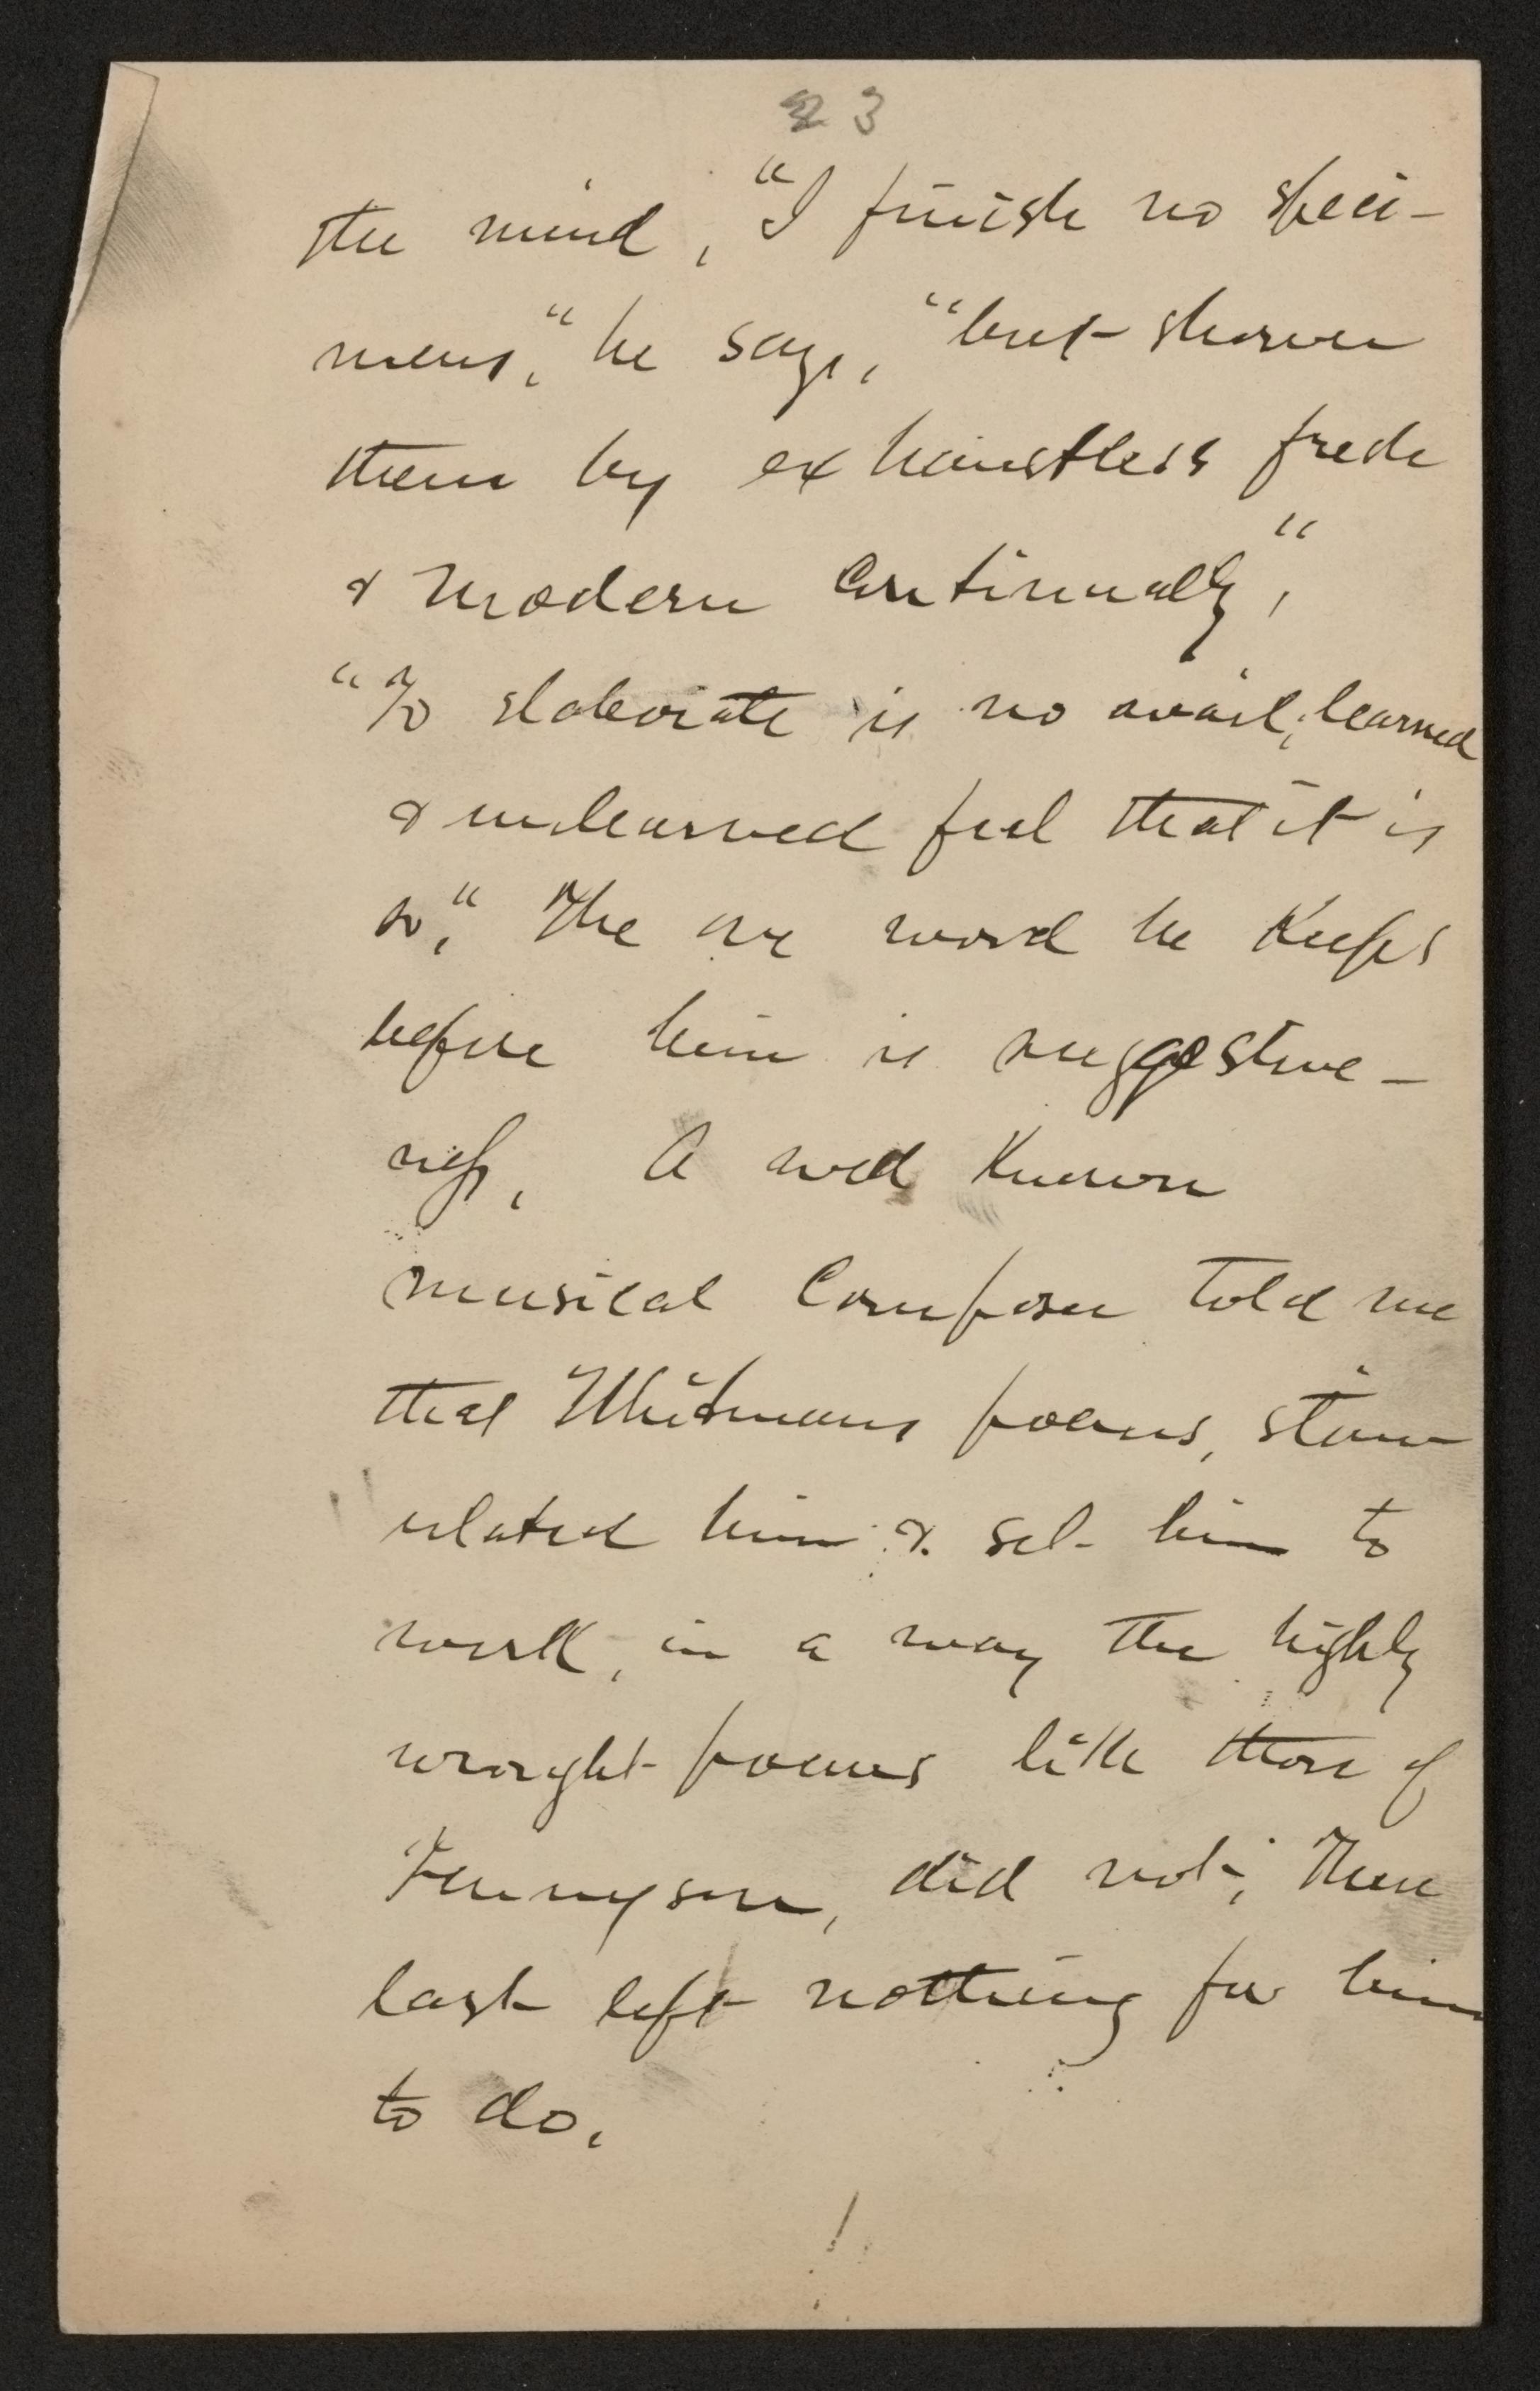 23
the mind, "I finish no speci-
mens," he says, "but shower
them by exhaustless fresh
& modern continually,"
"To elaborate is no avail; learned
& unlearned feel that it is
so." The one word he keeps
before him is suggestive-
ness. A well known
musical composer told me
that Whitmans poems, stim
ulated him & set him to
work, in a way the highly
wrought poems like those of
Tennyson, did not; These
last left nothing for him
to do.